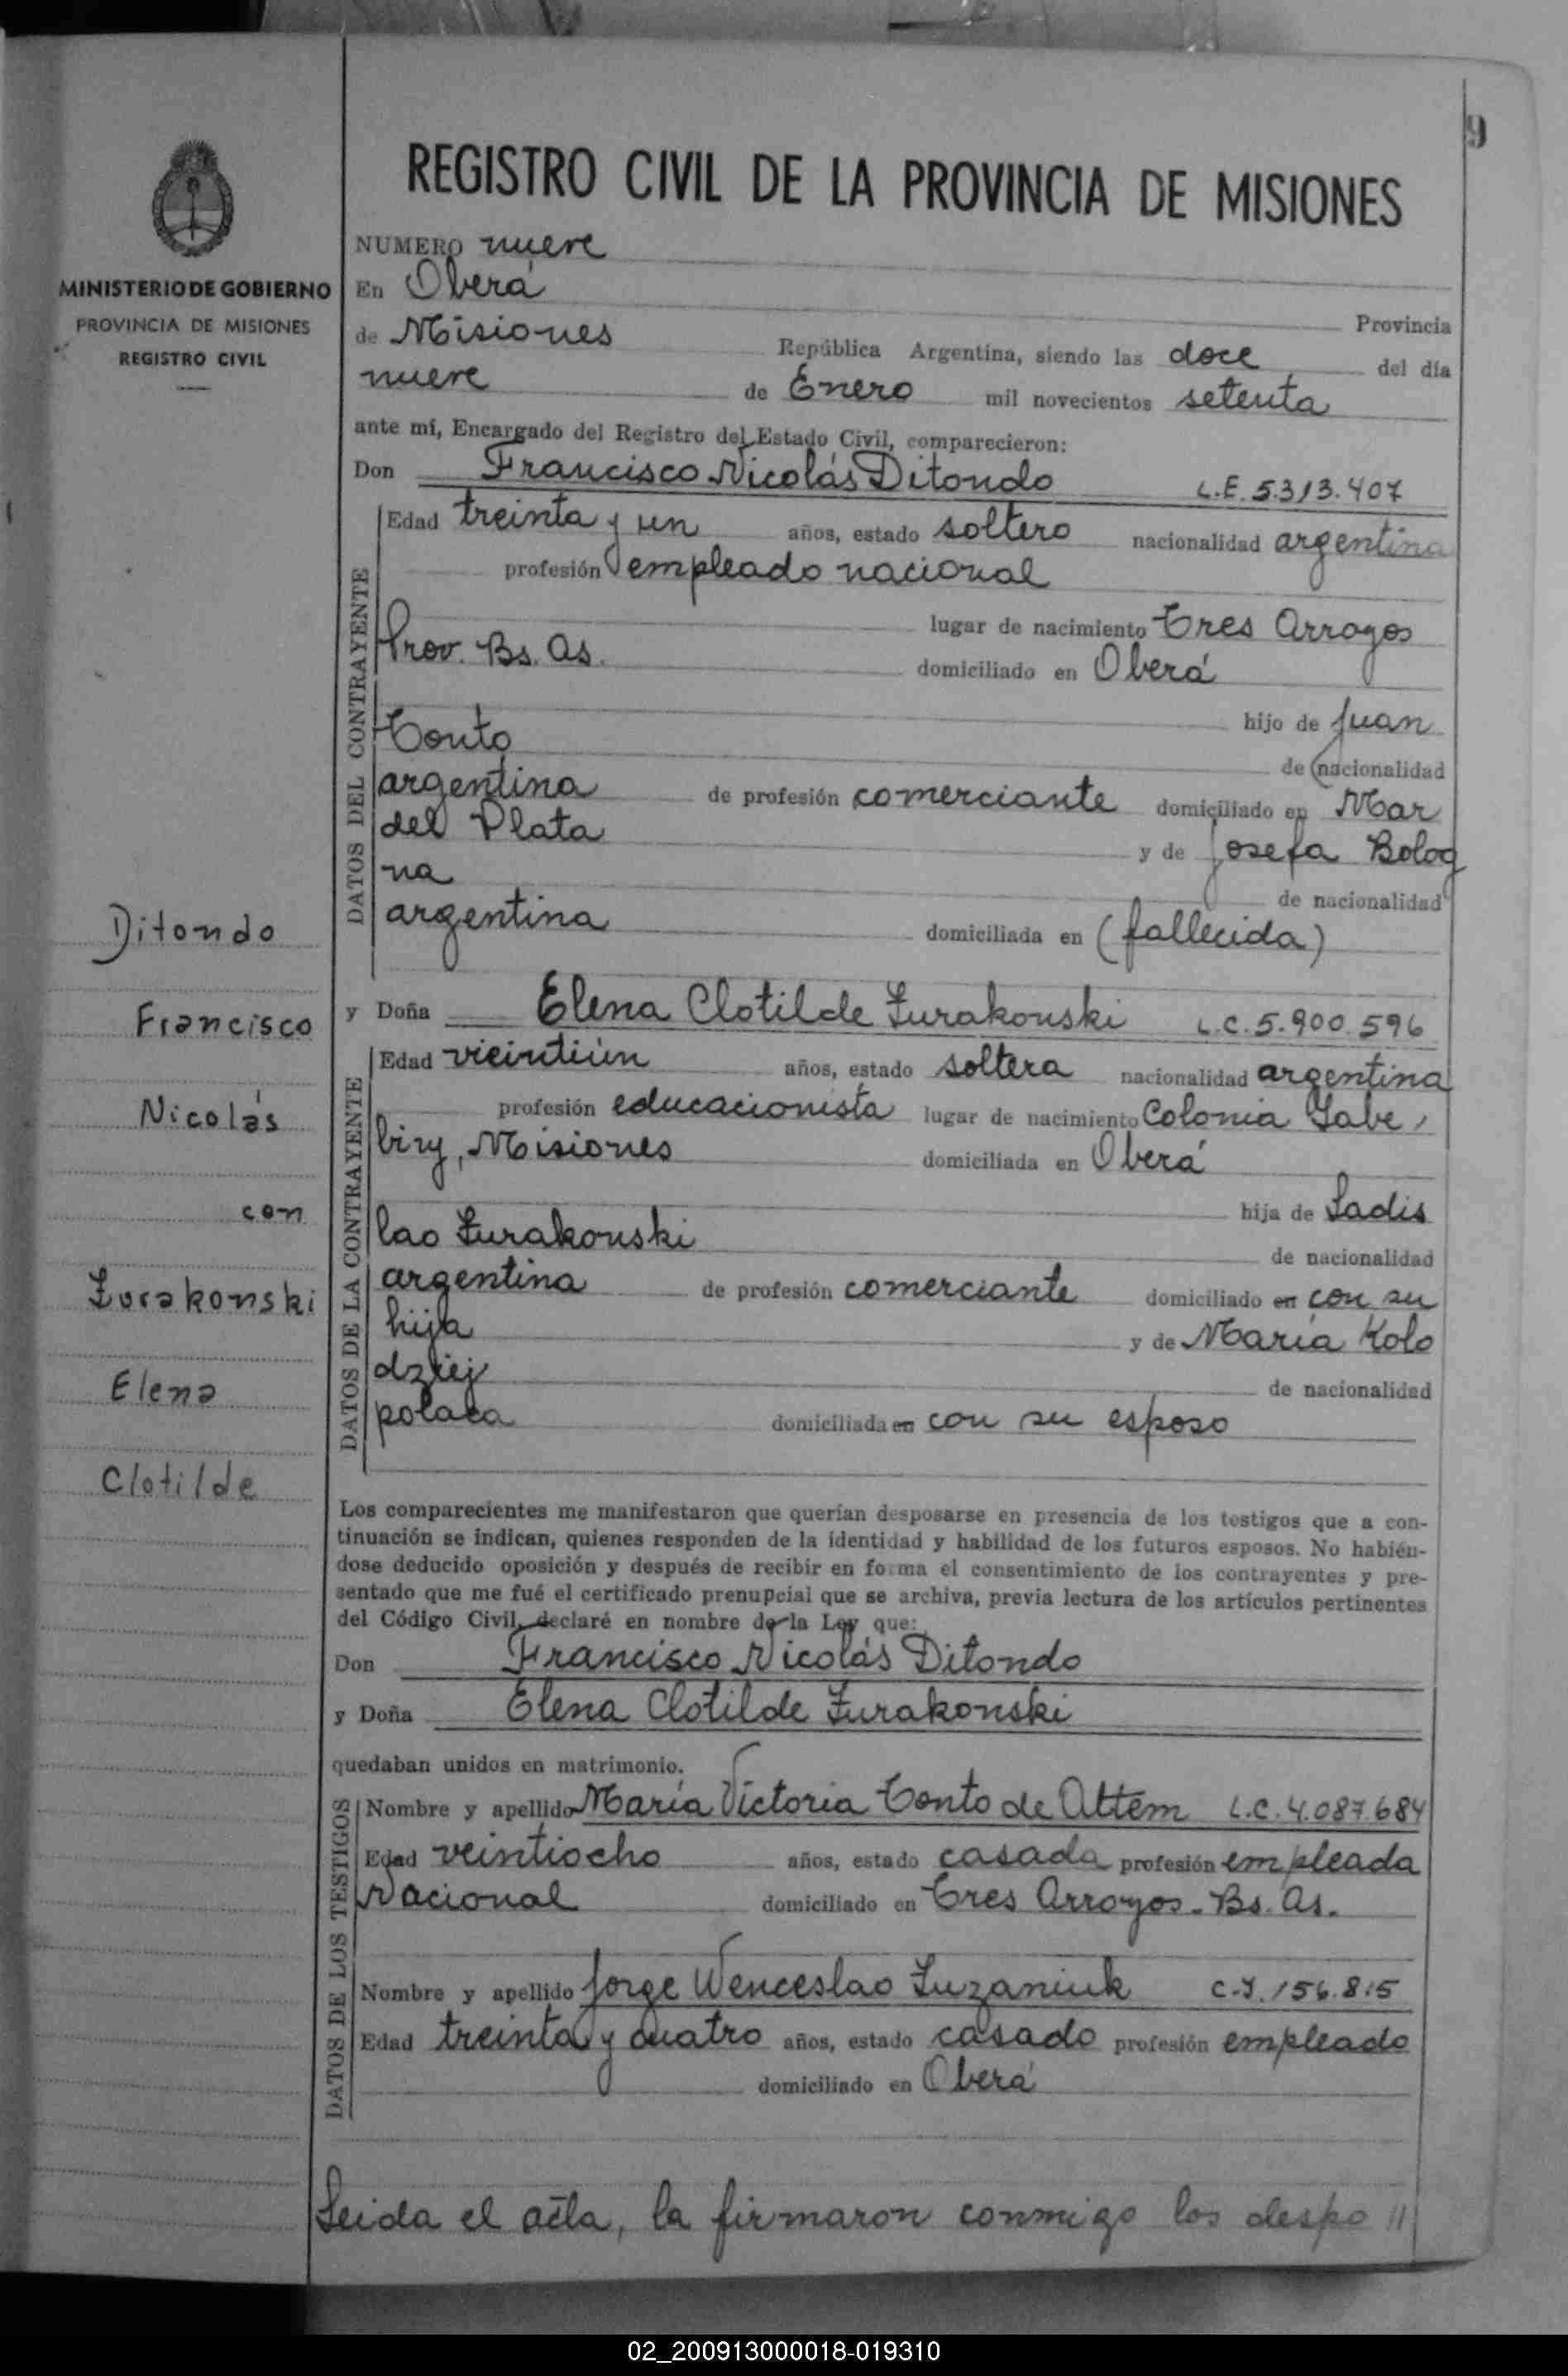 9
REGISTRO CIVIL DE LA PROVINCIA DE MISIONES
MINISTERIO DE GOBIERNO
PROVINCIA DE MISIONES
REGISTRO CIVIL
NUMERO nueve
En Oberá
Provincia
de Misiones República Argentina, siendo las doce del día
nueve de Enero mil novecientos setenta
ante mí, Encargado del Registro del Estado Civil, comparecieron:
Don Francisco Nicolás Ditondo L.E. 5.313.407
DATOS DEL CONTRAYENTE
Edad treinta y un años, estado soltero nacionalidad argentina
profesión empleado nacional
lugar de nacimiento Tres Arroyos
Prov. Bs. As. domiciliado en Oberá
hijo de Juan
Tonto
de nacionalidad
argentina de profesión comerciante domiciliado en Mar
del Plata y de Josefa Bolog
na
de nacionalidad
argentina domiciliada en (fallecida)
y Doña Elena Clotilde Zurakouski L.C. 5.900.596
DATOS DE LA CONTRAYENTE
Edad vieintiún años, estado soltera nacionalidad argentina
profesión educacionista lugar de nacimiento Colonia Yabe
biry, Misiones domiciliada en Oberá
hija de Ladis
lao Zurakouski
de nacionalidad
argentina de profesión comerciante domiciliado en con su
hija y de María Kolo
dziej
de nacionalidad
polaca domiciliada en con su esposo
Los comparecientes me manifestaron que querían desposarse en presencia de los testigos que a con-
tinuación se indican, quienes responden de la identidad y habilidad de los futuros esposos. No habién-
dose deducido oposición y después de recibir en forma el consentimiento de los contrayentes y pre-
sentado que me fué el certificado prenupcial que se archiva, previa lectura de los artículos pertinentes
del Código Civil, declaré en nombre de la Ley que:
Don Francisco Nicolás Ditondo
y Doña Elena Clotilde Zurakonski
quedaban unidos en matrimonio.
DATOS DE LOS TESTIGOS
Nombre y apellido María Victoria Tonto de Attem L.C. 4.087.684
Edad veintiocho años, estado casada profesión empleada
Nacional domiciliado en Tres Arroyos - Bs. As.
Nombre y apellido Jorge Wenceslao Luzaniuk C.I. 156.815
Edad treinta y cuatro años, estado casado profesión empleado
domiciliado en Oberá
Leida el acta, la firmaron conmigo los despo //
Ditondo
Francisco
Nicolás
con
Zurakonski
Elena
Clotilde
02_200913000018-019310